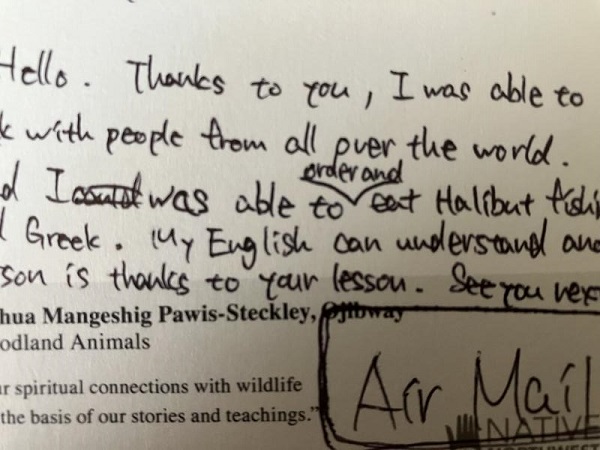 Hello. Thanks to you, I was able to
k with people from all over the world.
order and
d I was able to eat Halibut fishi
l Greek. My English can understand and
son is thanks to your lesson. See you nex
hua Mangeshig Pawis-Steckley, Ojibway
odland Animals
r spiritual connections with wildlife
the basis of our stories and teachings."
Air Mail
NATIVE
NORTHWEST